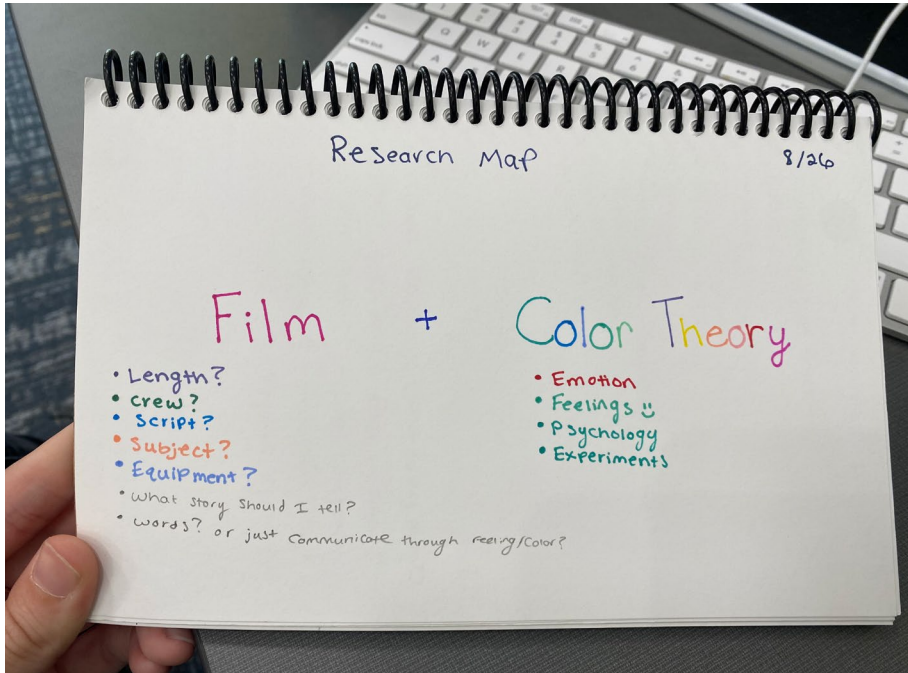 Research Map
8/26
Film + Color Theory
• Length?
• crew?
• Script?
• Subject?
• Equipment?
• what story should I tell?
• words? or just communicate through feeling/color?
• Emotion
• Feelings :)
• Psychology
• Experiments